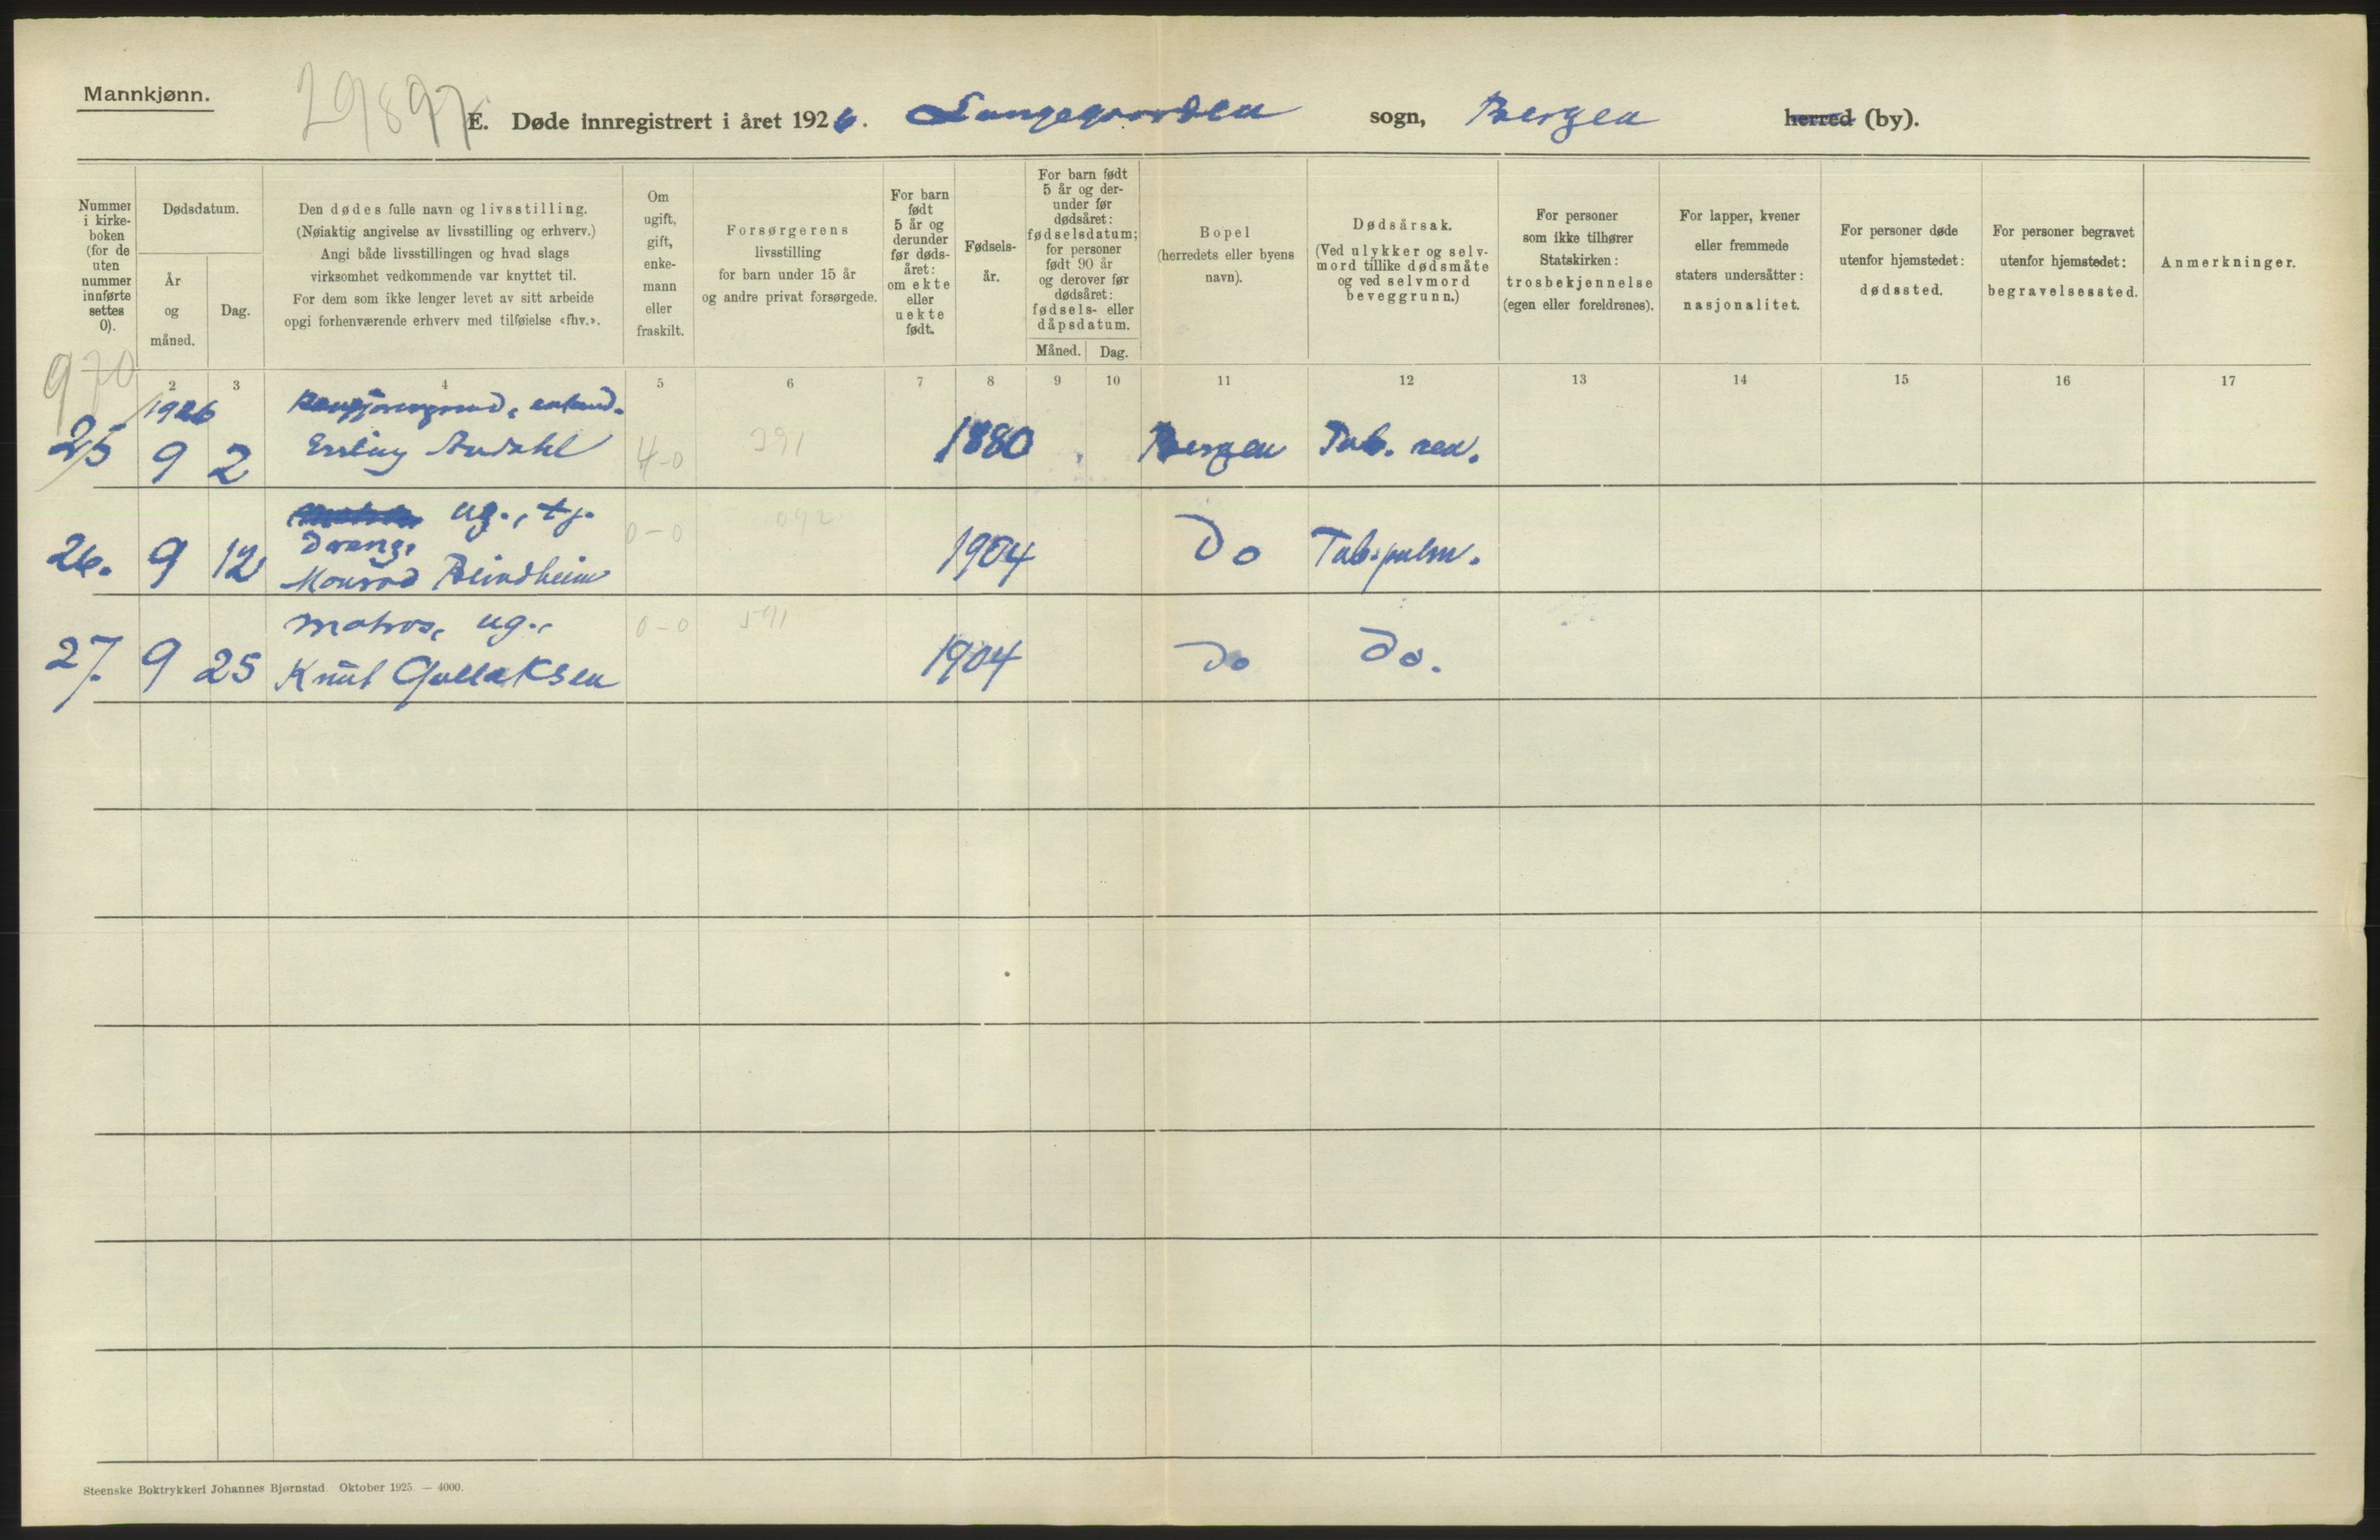 Mannkjønn.
29897
E. Døde innregistrert i året 1926. Lungegaarden sogn, Bergen herred (by).
Nummer i kirke- boken (for de uten nummer innførte settes 0).
Dødsdatum.
År og måned.
Dag.
Den dødes fulle navn og livsstilling.
(Nøiaktig angivelse av livsstilling og erhverv.)
Angi både livsstillingen og hvad slags
virksomhet vedkommende var knyttet til.
For dem som ikke lenger levet av sitt arbeide
opgi forhenværende erhverv med tilføielse «fhv.».
Om ugift, gift, enke- mann eller fraskilt.
Forsørgerens
livsstilling
for barn under 15 år
og andre privat forsørgede.
For barn født 5 år og derunder før døds- året: om ekte eller uekte født.
Fødsels- år.
For barn født 5 år og der- under før dødsåret: fødselsdatum; for personer født 90 år og derover før dødsåret: fødsels- eller dåpsdatum.
Måned. Dag.
Bopel
(herredets eller byens
navn).
Dødsårsak.
(Ved ulykker og selv-
mord tillike dødsmåte
og ved selvmord
beveggrunn.)
For personer
som ikke tilhører
Statskirken:
trosbekjennelse
(egen eller foreldrenes).
For lapper, kvener
eller fremmede
staters undersåtter:
nasjonalitet.
For personer døde
utenfor hjemstedet:
dødssted.
For personer begravet
utenfor hjemstedet:
begravelsessted.
Anmerkninger.
970
2 3 4 5 6 7 8 9 10 11 12 13 14 15 16 17
1926
25 9 2 Erling Andahl 4-0 391 1880 Bergen Tub. ren.
ug., tj.
Dreng,
26. 9 12 Monrad Blindheim 0-0 092 1904 Do Tub. pulm.
Matros, ug.,
27. 9 25 Knut Gullaksen 0-0 591 1904 Do Do.
Steenske Boktrykkeri Johannes Bjørnstad. Oktober 1925. — 4000.